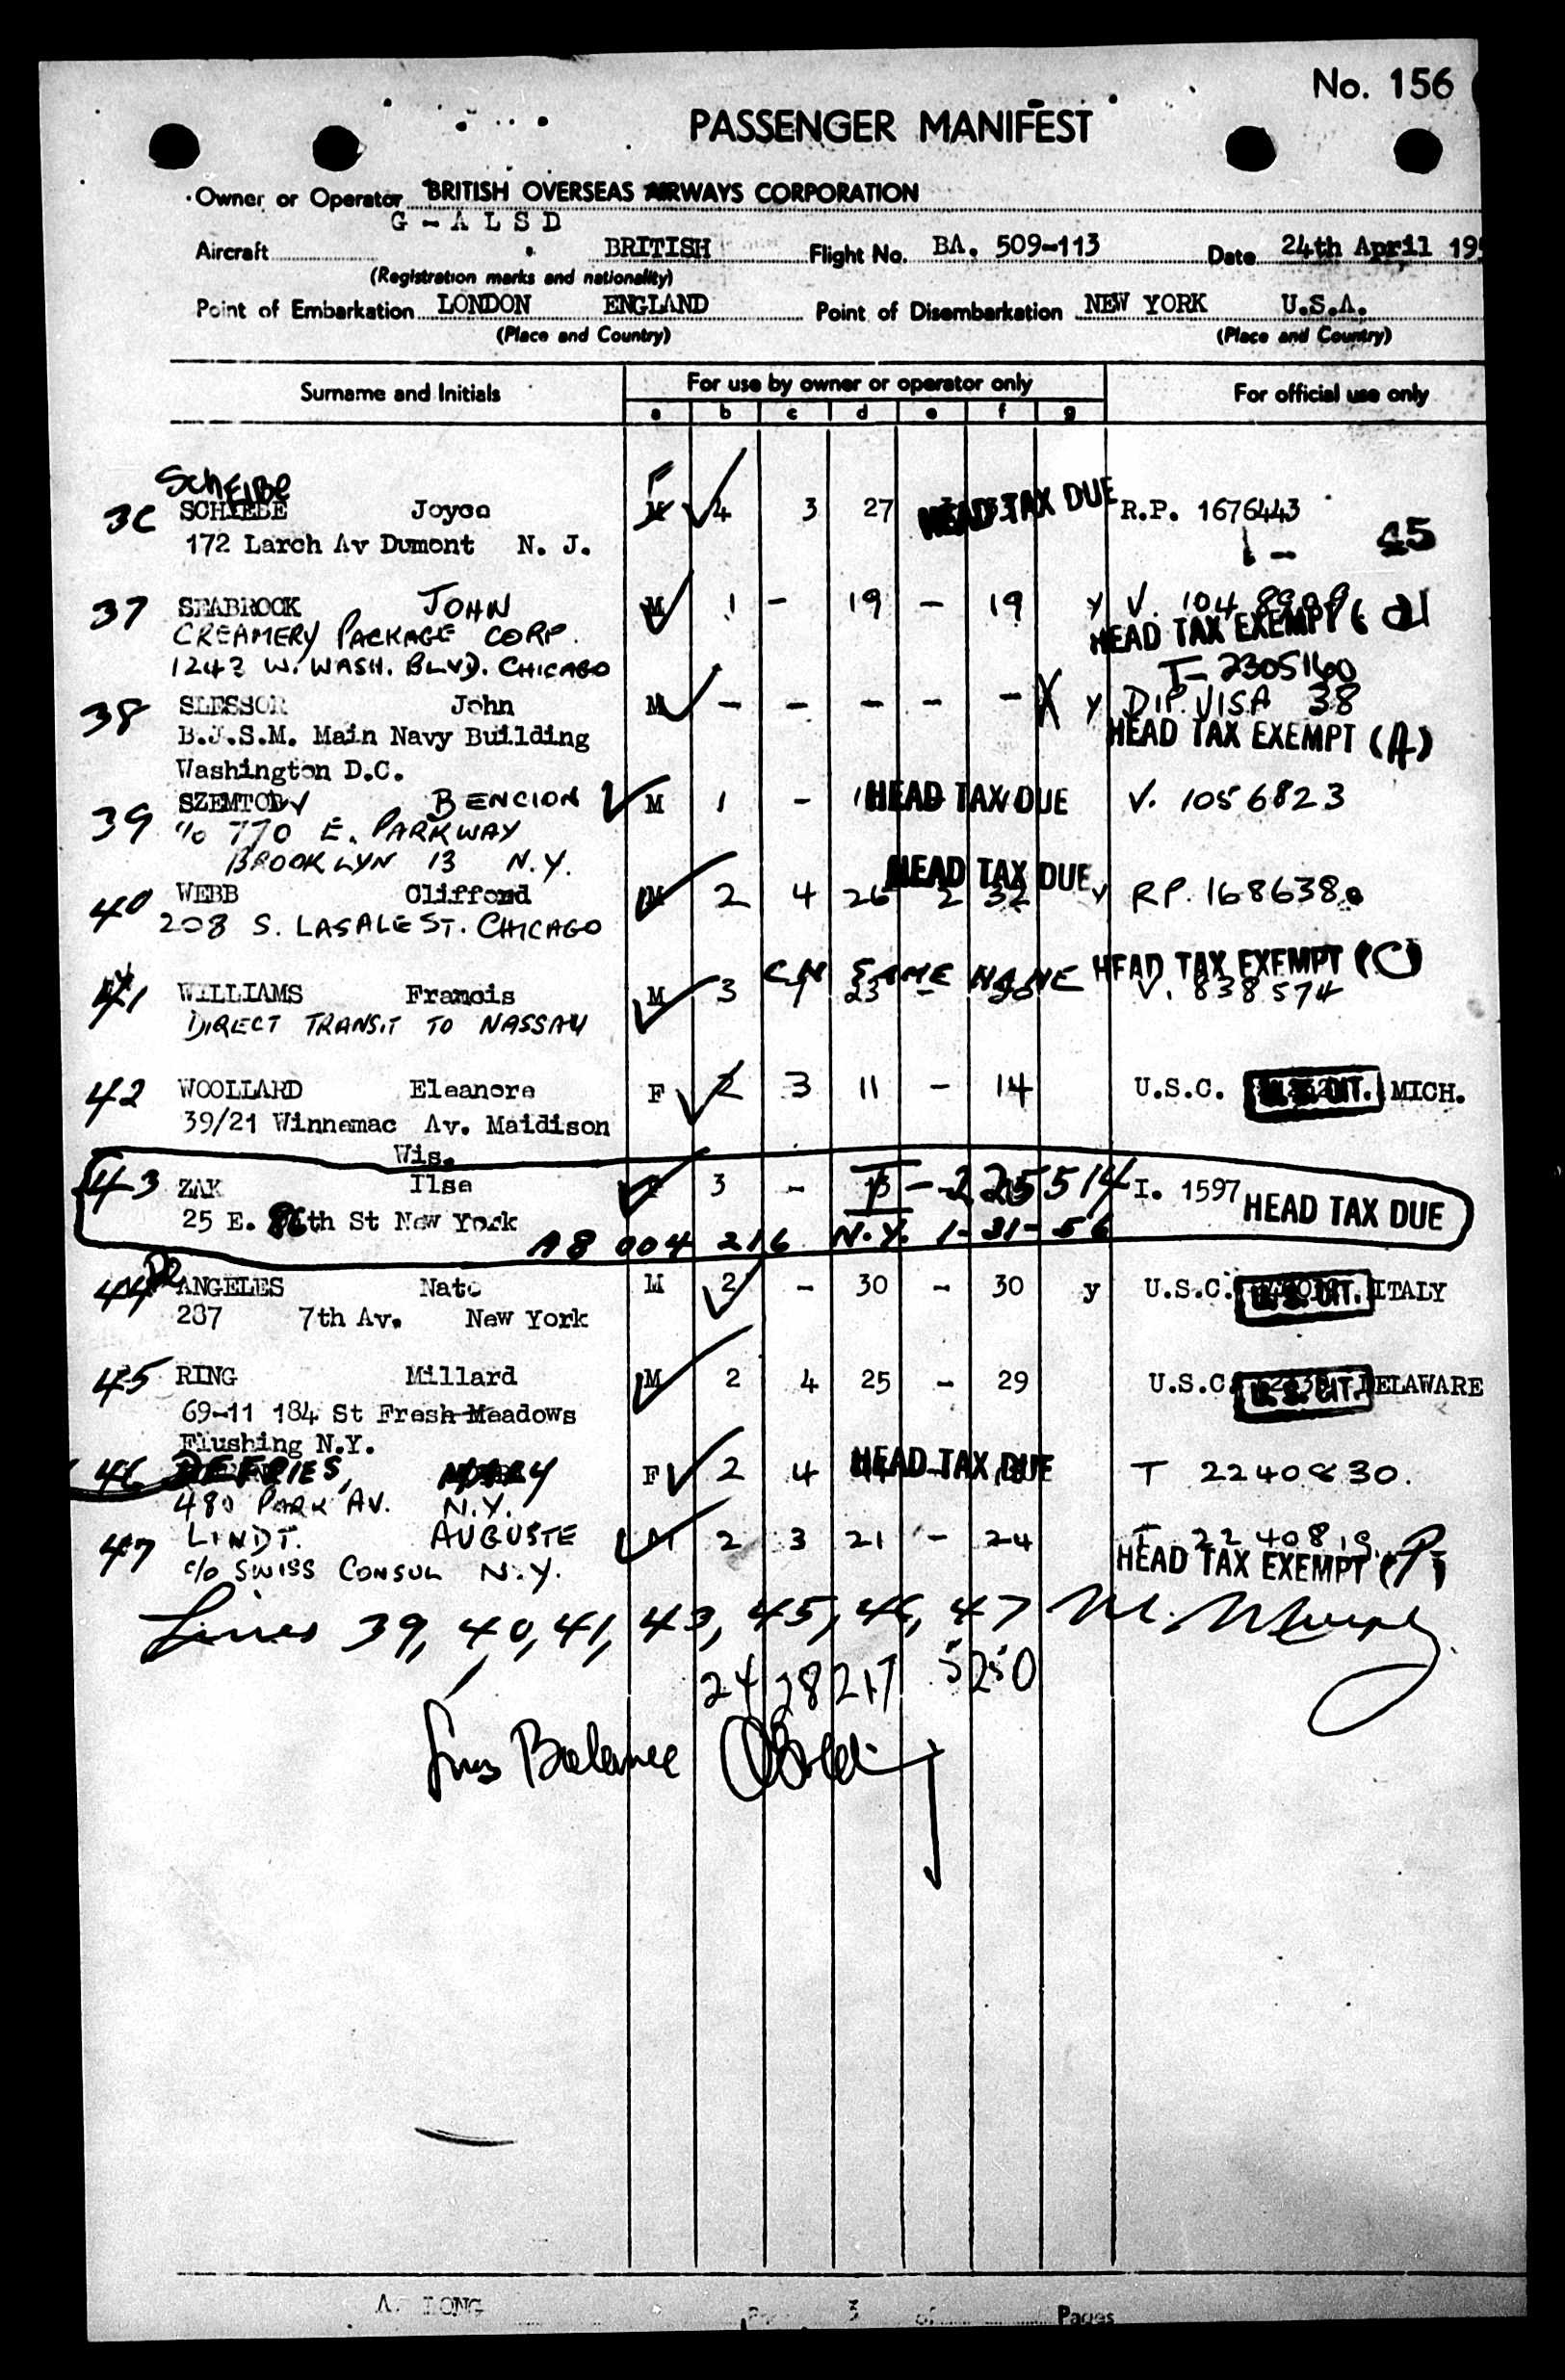 No. 156
PASSENGER MANIFEST
Owner or Operator BRITISH OVERSEAS AIRWAYS CORPORATION
G - A L S D
Aircraft BRITISH Flight No. BA. 509-113 Date 24th April 195
(Registration marks and nationality)
Point of Embarkation LONDON ENGLAND Point of Disembarkation NEW YORK U.S.A.
(Place and Country) (Place and Country)
Surname and Initials For use by owner or operator only For official use only
a b c d e f g
Scheibe
36 SCHIEBE Joyce F M 4 3 27 HEAD TAX DUE R.P. 1676443
172 Larch Av Dumont N. J. 1 - 45
37 SEABROOK JOHN M 1 - 19 - 19 y V. 1048909
CREAMERY PACKAGE CORP. HEAD TAX EXEMPT
1242 W. WASH. BLVD. CHICAGO T- 2305160
38 SLESSOR John M - - - - - X y DIP. VISA 38
B.J.S.M. Main Navy Building HEAD TAX EXEMPT (A)
Washington D.C.
39 SZEMTOBV BENCION M 1 - HEAD TAX DUE V. 1056823
c/o 770 E. PARKWAY
BROOKLYN 13 N.Y.
HEAD TAX DUE
40 WEBB Clifford M 2 4 26 2 32 y RP. 168638
208 S. LASALE ST. CHICAGO
CN SAME NAME HEAD TAX EXEMPT (C)
41 WILLIAMS Francis M 3 1 23 - V. 838574
DIRECT TRANSIT TO NASSAU
42 WOOLLARD Eleanore F 2 3 11 - 14 U.S.C. U.S. CIT. MICH.
39/21 Winnemac Av. Maidison
Wis.
43 ZAK Ilse 3 - T-225514 I. 1597 HEAD TAX DUE
25 E. 86th St New York
A8 004 216 N.Y. 1-31-56
De
44 ANGELES Nato M 2 - 30 - 30 y U.S.C. U.S. CIT. ITALY
287 7th Av. New York
45 RING Millard M 2 4 25 - 29 U.S.C. U.S. CIT. DELAWARE
69-11 184 St Fresh Meadows
Flushing N.Y.
46 DEFRIES, MARY F 2 4 HEAD TAX DUE T 2240830.
480 PARK AV. N.Y.
47 LINDT. AUGUSTE M 2 3 21 - 24 T 224081
c/o SWISS CONSUL N.Y. HEAD TAX EXEMPT
Lines 39, 40, 41, 43, 45, 46, 47 M. Murphy
24 28 217 5 250
Lines Balance
A. LONG 3 of Pages